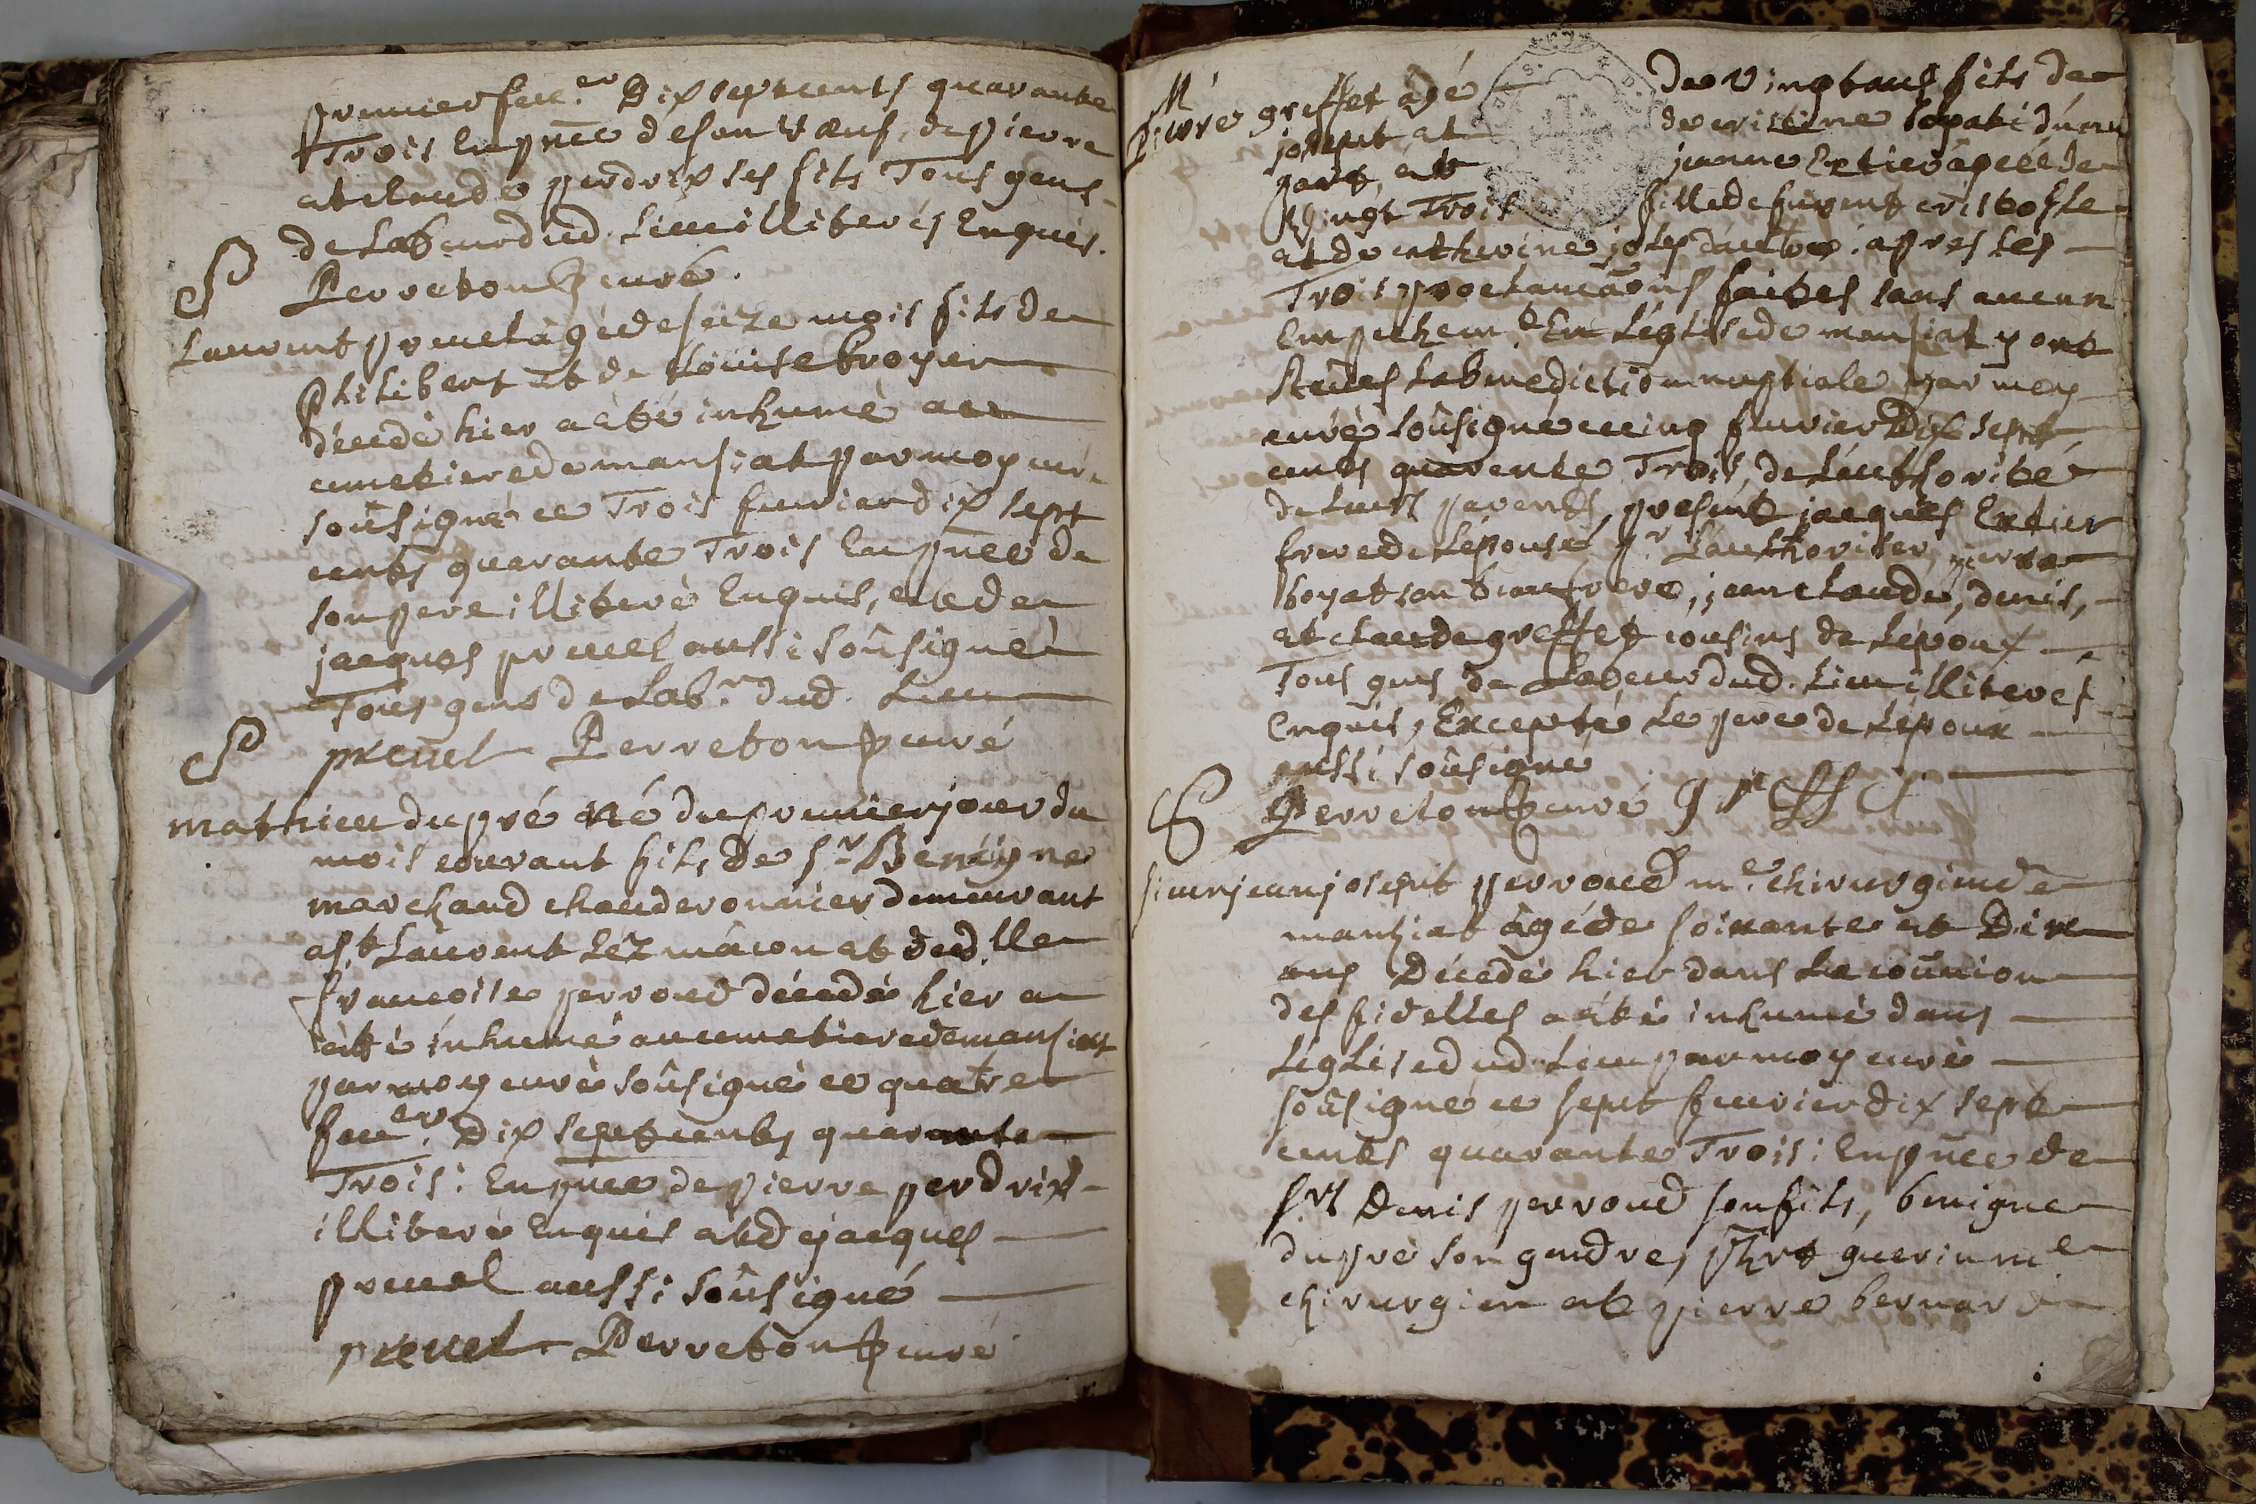 premier feu.er Dix sept cents quarante
Trois En pñce d'esan Vœuf, de pierre
et claude perdrix ses fils Tous gens
de Labeur dud. Lieu illiterés Enquis.
Perreton curé.
S
Laurent preuel âgé de seize mois fils de
Philibert et de Loüise broyer
décedé hier a été inhumé au
cimetiere de mansiat par moy curé
soûsigné ce Trois feurier dix sept
cents quarante Trois En pñce de
son pere illiteré Enquis, et de
jacques preuel aussi soûsigné
Tous gens de Lab.r dud. Lieu
preuel Perreton curé
S
mathieu dupré né du premier jour du
mois courant fils de S.r Benigne
marchand chauderonnier demeurant
a S.t Laurent Léz mâcon et de d.lle
francoise perroud décedé hier a
été inhumé au cimetiere de mansiat
par moy curé soûsigné ce quatre
feu.er Dix sept cents quarante
Trois : En pñce de pierre perdrix
illiteré Enquis et de jacques
preuel aussi soûsigné
preuel Perreton curé
M
Pierre greffet âgé de Vingt ans fils de
josept et de cristine
part, et jeanne Extier âgée de
Vingt Trois fille de Laurent cristofle
et de catherine josep d'autre, apres Les
Trois proclamaõns faites sans aucun
Empechem.t En L'église de mansiat y ont
Receües La benediction nuptiale par moy
curé soûsigné ce cinq feurier Dix sept
cents quarente Trois, de L'authorité
de Leurs parents, present jacques Extier
frere de L'épouse p.r L'authoriser, pierre
boyat son beaufrere, jean claude, denis,
et claude greffet cousins de L'époux
Tous gens de Labeur dud. Lieu illiterés
Enquis, Excepté Le pere de L'époux
aussi soûsigné
Perreton curé
S
Sieur jean josept perroud m.e chirurgien de
mansiat âgé de soixante et Dix
ans Décedé hier dans La coṁunion
des fidelles a été inhumé dans
L'églised ud. Lieu par moy curé
soûsigné ce sept feurier dix sept
cents quarante Trois : En pñce de
S.rs Denis perroud son fils, benigne
dupré son gendre, guerin m.e
chirurgien et pierre bernard